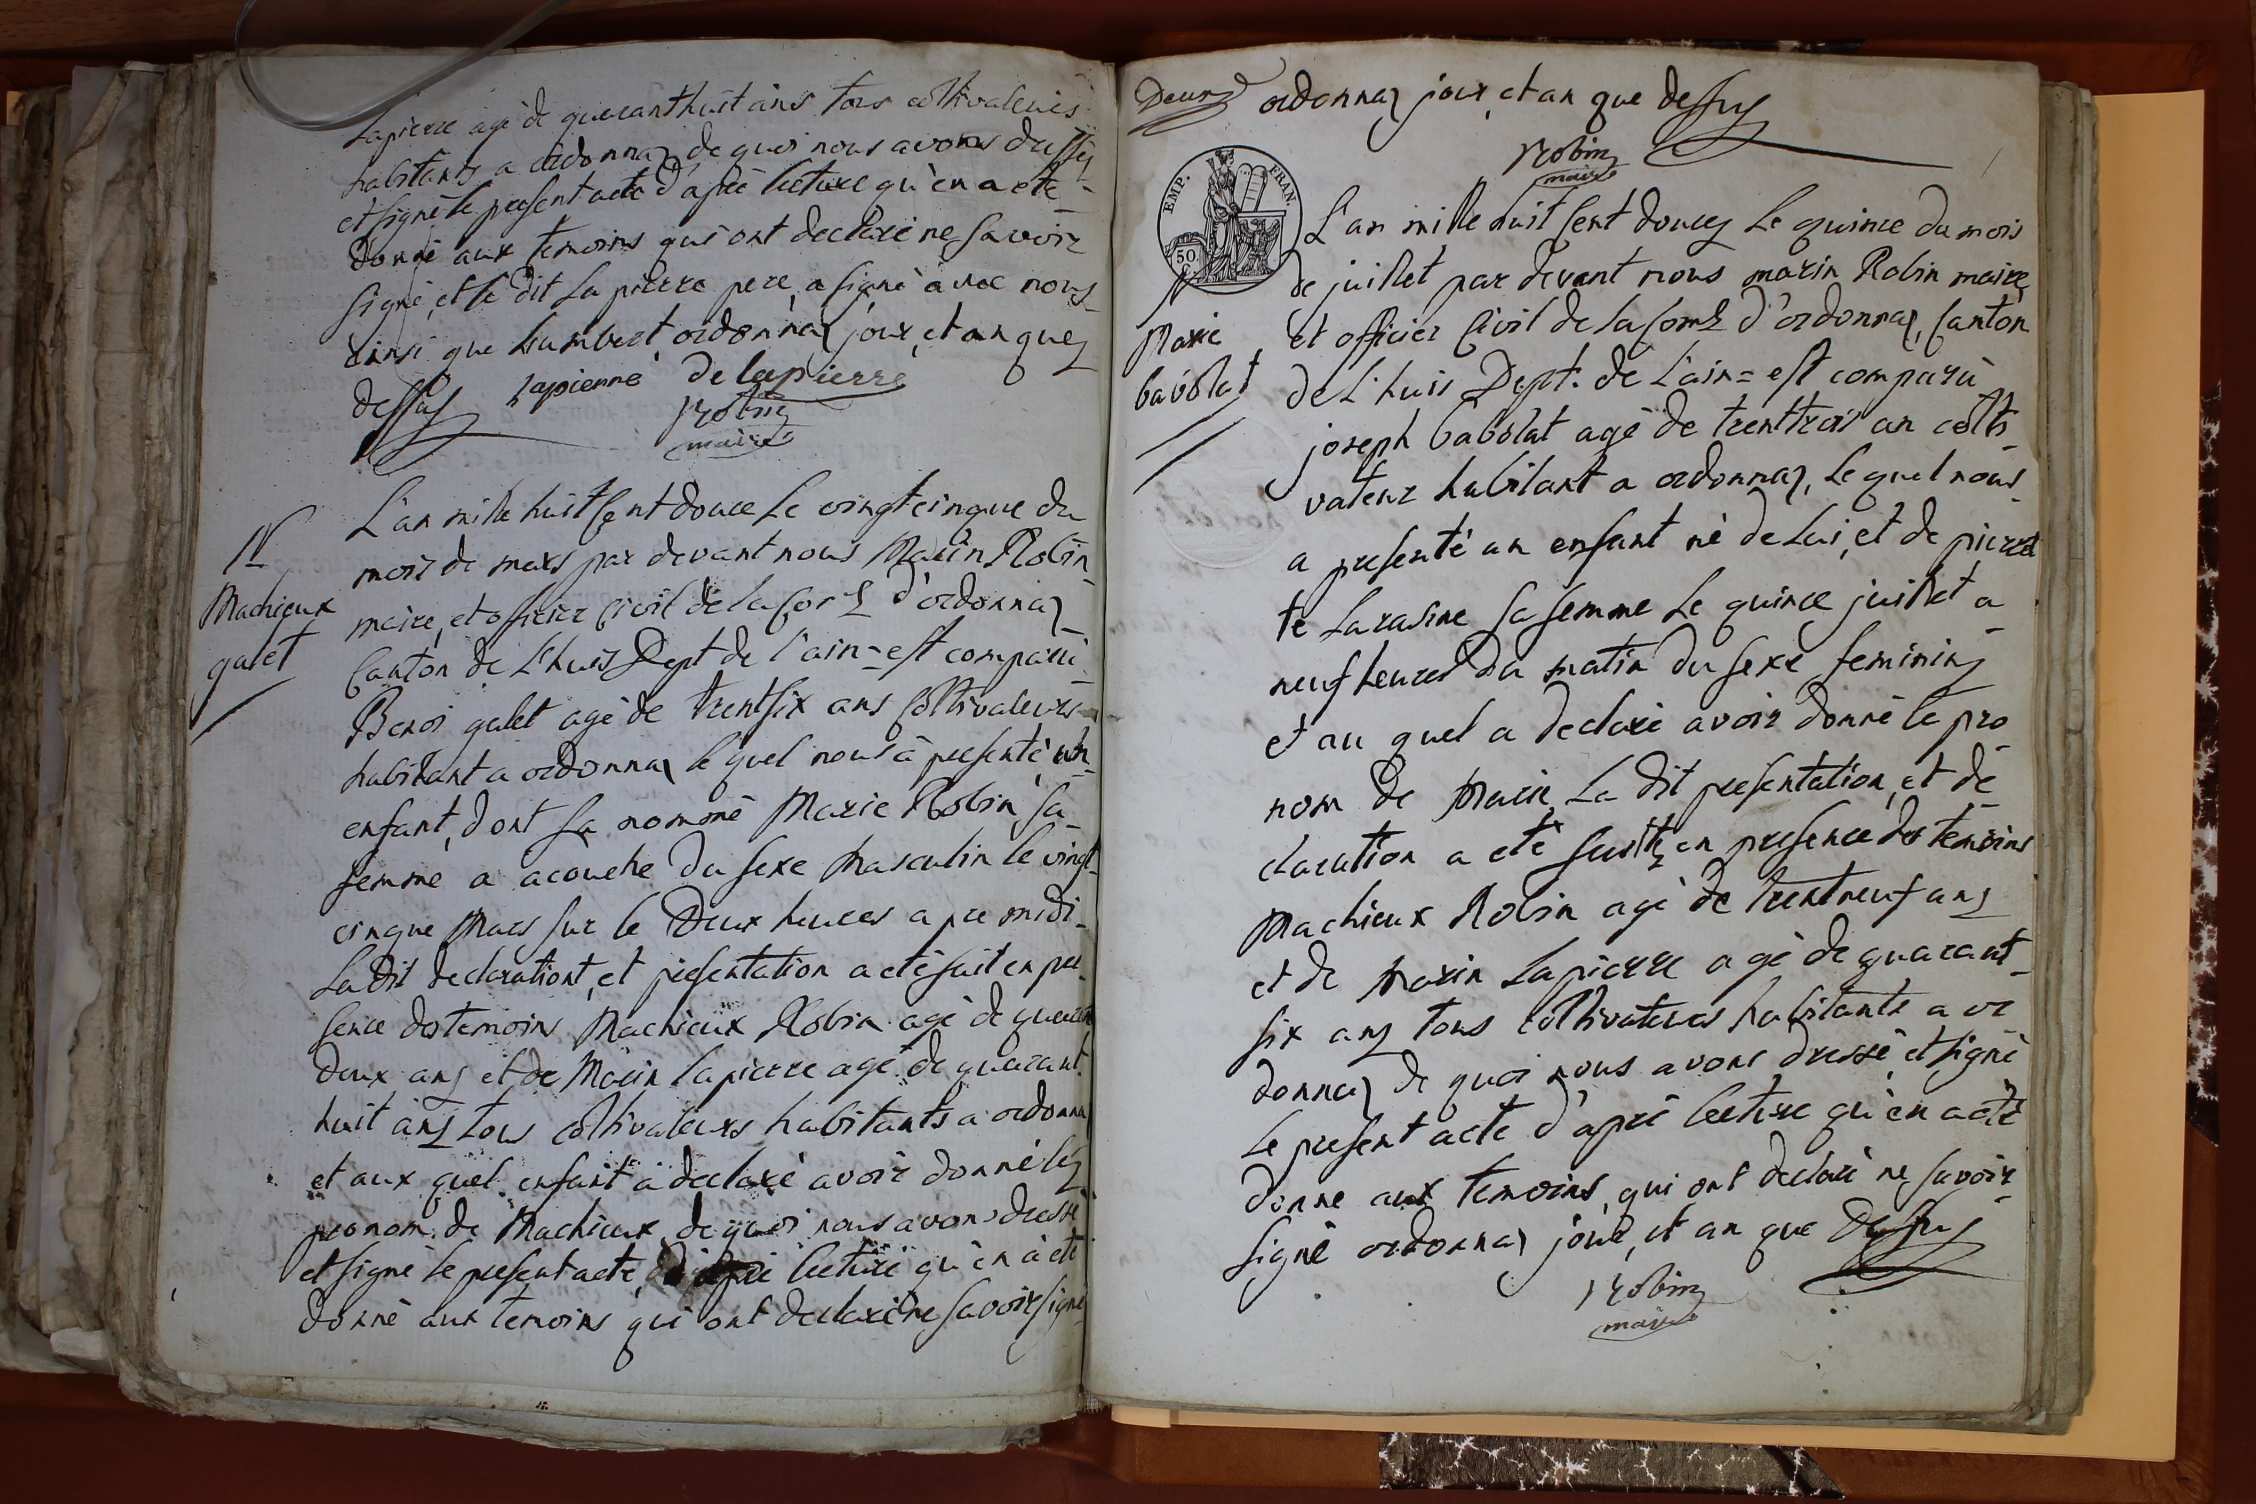 Lapierre agé de quarant huit ans tous coltivateurs
habitants a ordonnaz de quoi nous avons dressez
et signé le present acte d'aprè lecture qu'en a eté
donné aux temoins qui ont declaré ne savoir
signé, et le dit Lapierre pere, a signé avec nous
ainsi que humbert ordonnaz jour, et an que
dessus lapierre delapierre
Robin
maire
N
Machieux
galet
L'an mille huit sent douce le vingt cinque du
mois de mars par devant nous Marin Robin
maire, et officier civil de la Com d'ordonnaz
Canton de L'huis Dept de l'ain = est comparu
Benoi galet agé de trent six ans coltivateurs
habitant a ordonnaz le quel nous à presenté un
enfant, dont sa nommé Marie Robin sa
femme a acouche du sexe Masculin le vingt
cinque Mars sur le Deux heures a pre midi
La dit declarationt, et presentation a eté fait en pre
sence des temoins Machieux Robin agé de quarant
deux ans et de Marin lapierre agé de quarant
huit ans tous coltivateurs habitants a ordonna
et aux quel enfant à declaré avoir donné le
pronom de Machieux, de quoi nous avons dressé
et signé le present acte, d'aprè lecture qu'en à eté
donné aux temoins qui ont declaré ne savoir signé
Deux ordonnaz jour, et an que dessus
Robin
maire
EMP. FRAN.
50.
N
Marie
babolat
L'an mille huit sent douce Le quince du mois
de juillet par devant nous marin Robin maire
et officier Civil de la Com d'ordonnaz, Canton
de L'huis Dept. de L'ain = est comparu
joseph babolat agé de trent troi an colti
vateur habitant a ordonnaz, le quel nous
a presenté un enfant né de Lui, et de pierre
te Larasine sa femme Le quince juillet a
neuf heures du matin du sexe feminin
et au quel a declaré avoir donné le pro
nom de Marie La dit presentation, et de
claration a eté faitte en presence des temoins
Machieux Robin agé de trent neuf ans
et de Marin Lapierre agé de quarant
six ans tous coltivateurs habitants a or
donnaz de quoi nous avons dressé, et signé
Le present acte d'aprè lecture qu'en a eté
donne aux temoins, qui ont declaré ne savoir
signé ordonnaz jour, et an que Dessus
Robin
maire